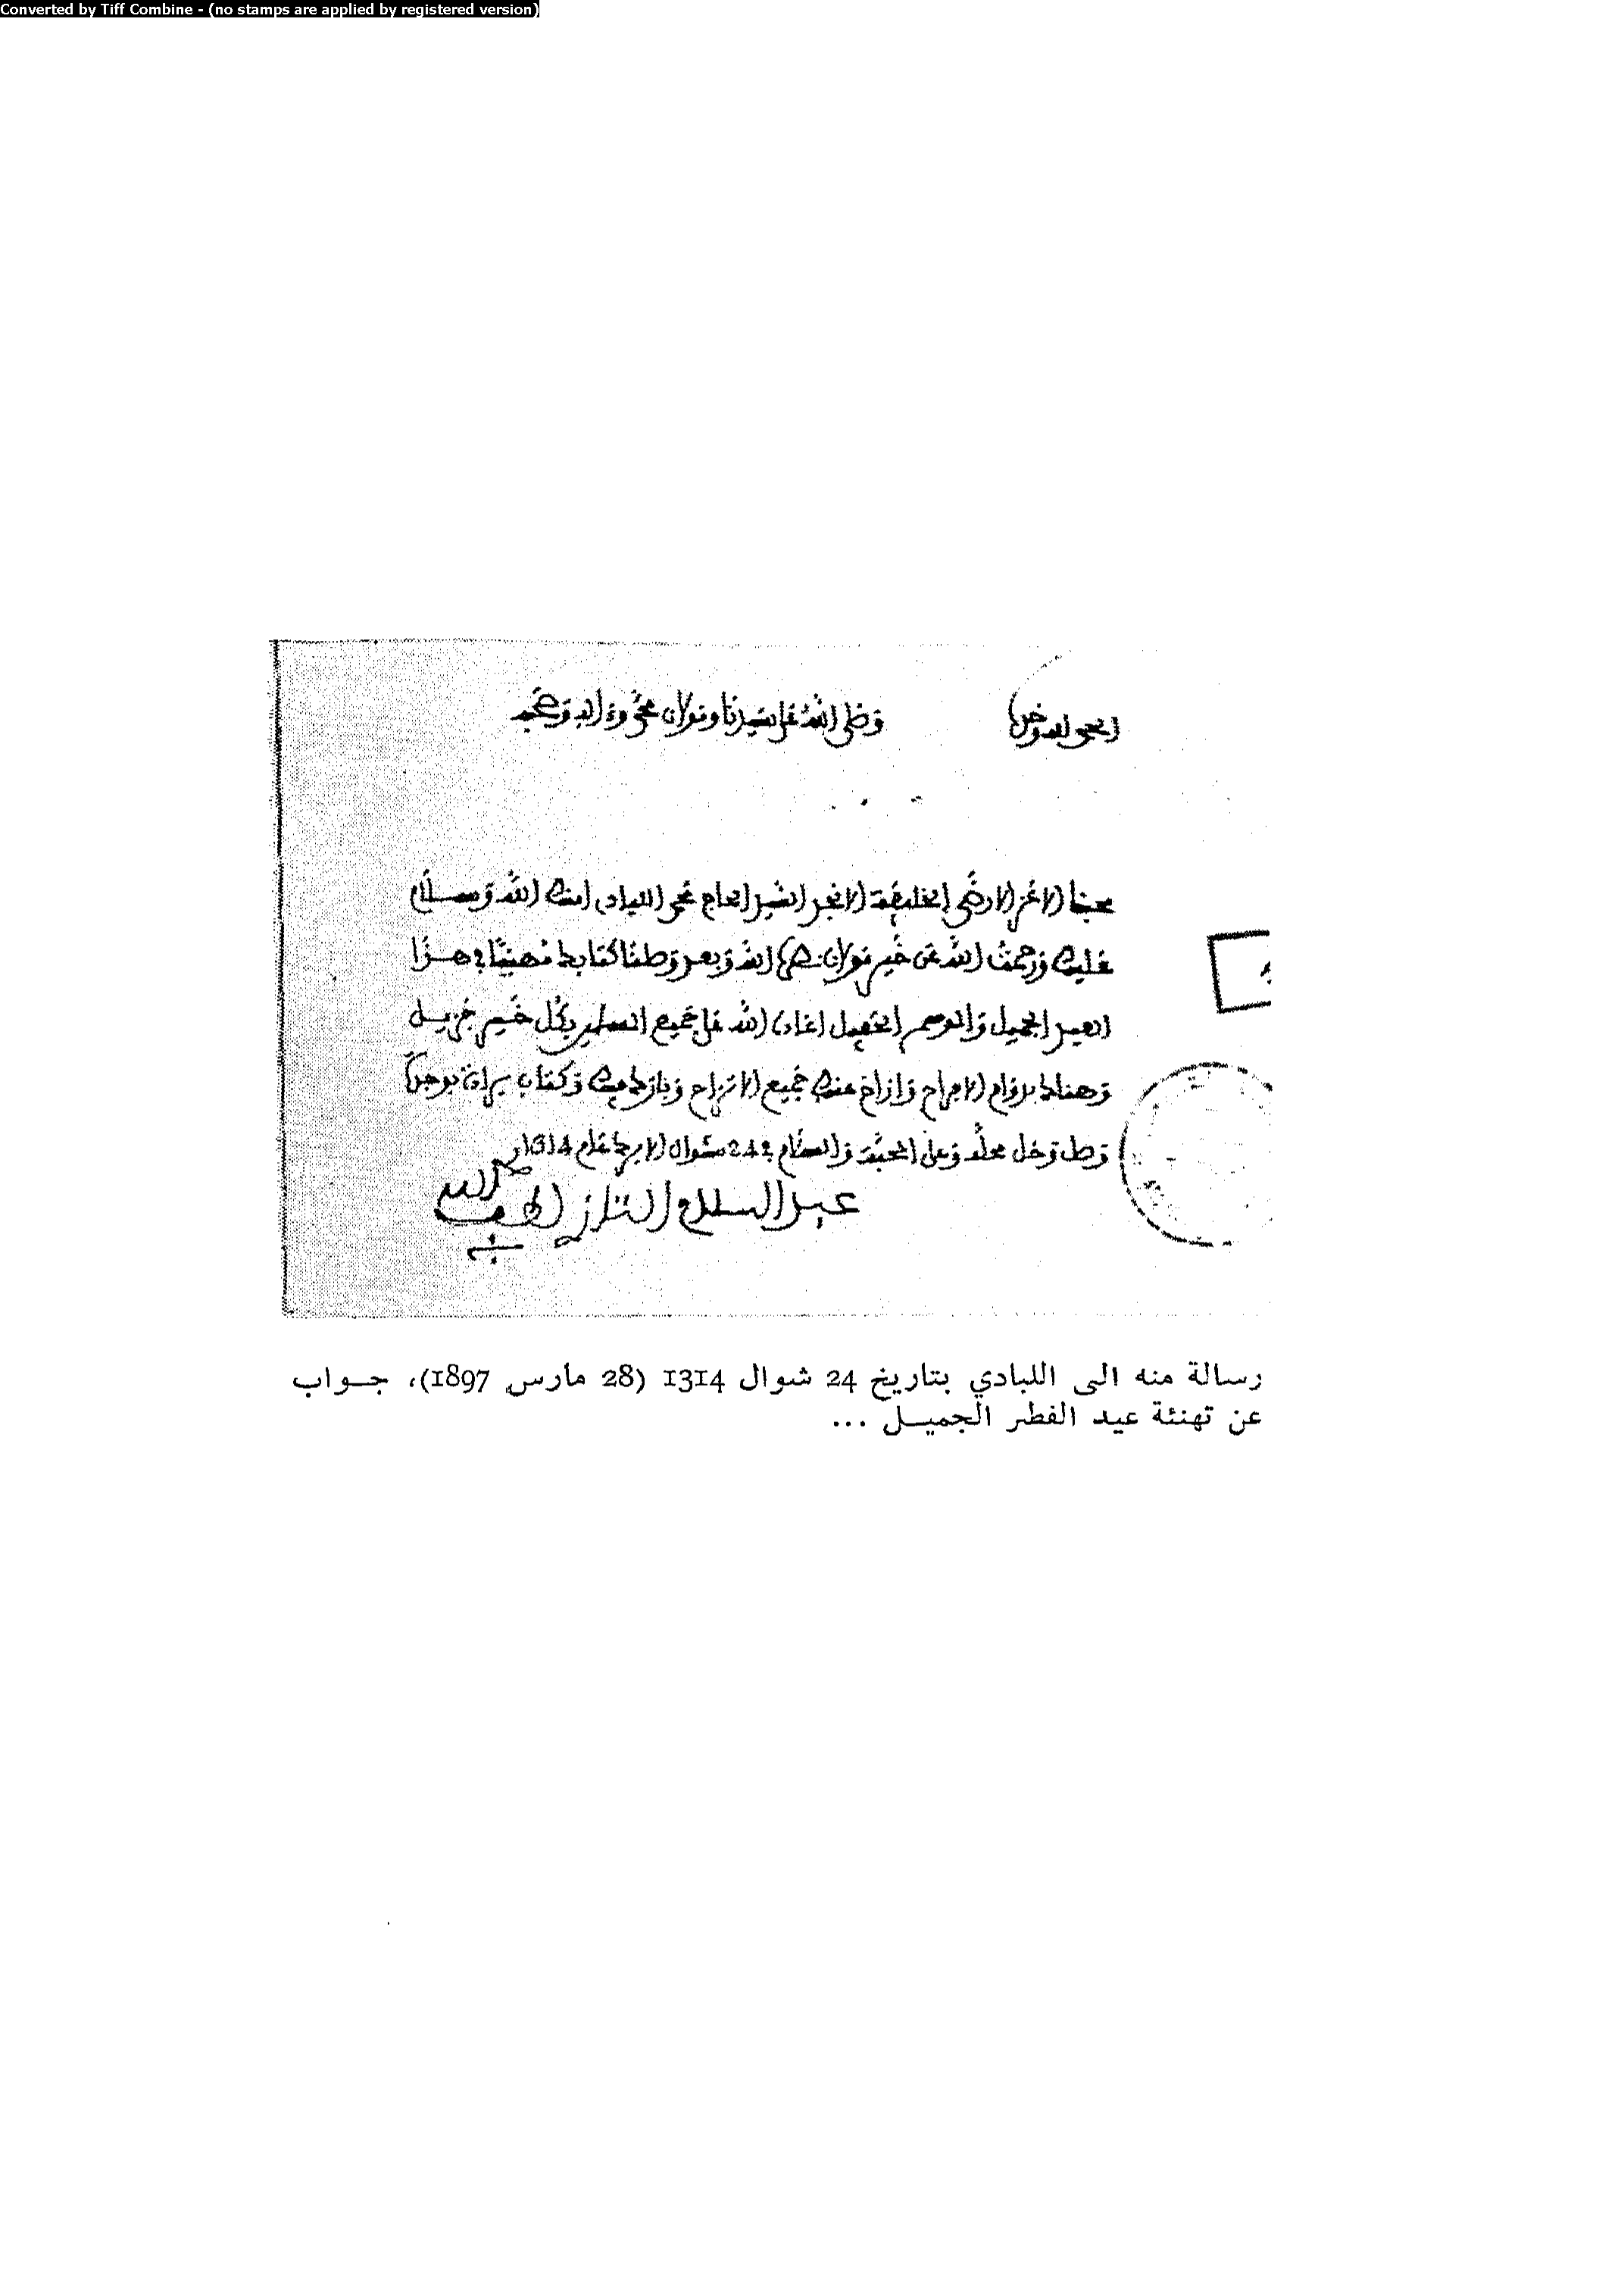 Converted by Tiff Combine - (no stamps are applied by registered version)
الحمد لله وحده
وصلى الله على سيدنا ومولانا محمد وءاله وصحبه
محبنا الاعز الارضى الخليفة الانجد السيد الحاج محمد اللبادي امنك الله وسلام
عليك ورحمت الله عن خير مولانا نصره الله وبعد وصلنا كتابك مهنئا في هذا
العيد الجميل والموسم الحفيل اعاده الله على جميع المسلمين بكل خير جزيل
وهناك بدوام الافراح وازاح عنك جميع الاتراح وبارك فيك وكتاب
وصل وحل محله وعلى المحبة والسلام في 24 شوال الابرك عام 1314
عبد السلام التازي لطف الله به
رسالة منه الى اللبادي بتاريخ 24 شوال 1314 (28 مارس 1897)، جــواب
عن تهنئة عيد الفطر الجميــل ...